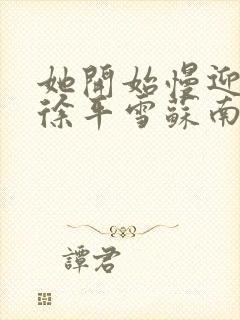 她開始慢迎
徐年雪蘇南
譚君